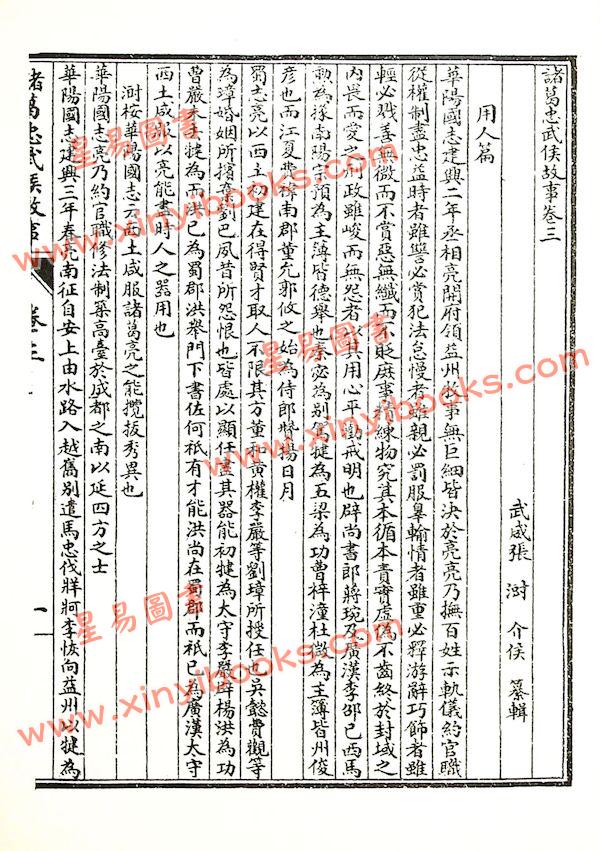 諸葛忠武侯故事卷三
武威張 澍 介侯 纂輯
用人篇
華陽國志建興二年丞相亮開府領益州牧事無巨細皆決於亮亮乃撫百姓示軌儀約官職
從權制盡忠益時者雖讐必賞犯法怠慢者雖親必罰服辠輸情者雖重必釋游辭巧飾者雖
輕必戮善無微而不賞惡無纖而不貶庶事精練物究其本循本責實虛偽不齒終於封域之
內畏而愛之刑政雖峻而無怨者以其用心平勸戒明也辟尚書郎蔣琬及廣漢李邵巴西馬
勳為掾南陽宗預為主薄皆德舉也秦宓為別駕犍為五梁為功曹梓潼杜微為主簿皆州俊
彥也而江夏費禕南郡董允郭攸之始為侍郎贊揚日月
蜀志亮以西土初建在得賢才取人不限其方董和黃權李嚴等劉璋所授任也吳懿費觀等
為璋婚姻所擯棄劉巴夙昔所怨恨也皆處以顯任盡其器能初犍為太守李嚴辟楊洪為功
曹嚴未去犍為而洪已為蜀郡洪舉門下書佐何祗有才能洪尚在蜀郡而祗已為廣漢太守
西土咸服以亮能盡時人之器用也
澍桉華陽國志云西土咸服諸葛亮之能攬拔秀異也
華陽國志亮乃約官職修法制築高臺於成都之南以延四方之士
華陽國志建興三年春亮南征自安上由水路入越嶲別遣馬忠伐牂牁李恢向益州以犍為
諸葛忠武侯故事 卷三
一
星易圖書
www.xinyibooks.com
星易圖書
www.xinyibooks.com
星易圖書
www.xinyibooks.com